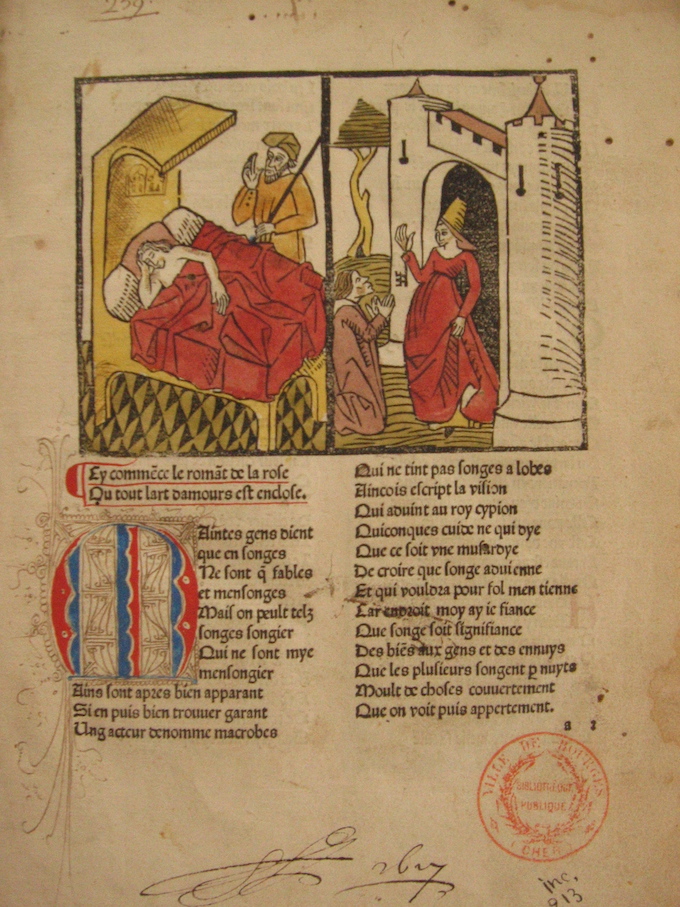 239
Cy commēce le romāt de la rose
Qu tout lart damours est enclose.
Maintes gens dient
que en songes
Ne sont q̄ fables
et mensonges
Mais on peult telz
songes songier
Qui ne sont mye
mensongier
Ains sont apres bien apparant
Si en puis bien trouuer garant
Ung acteur denomme macrobes
Qui ne tint pas songes a lobes
Aincois escript la vision
Qui aduint au roy cypion
Quiconques cuide ne qui dye
Que ce soit vne musardye
De croire que songe aduienne
Et qui vouldra pour fol men tienne
Car endroit moy ay ie fiance
Que songe soit signifiance
Des biēs aux gens et des ennuys
Que les plusieurs songent p nuyts
Moult de choses couuertement
Que on voit puis appertement.
a 2
VILLE DE BOURGES
BIBLIOTHEQUE
PUBLIQUE
(CHER)
inc.
913